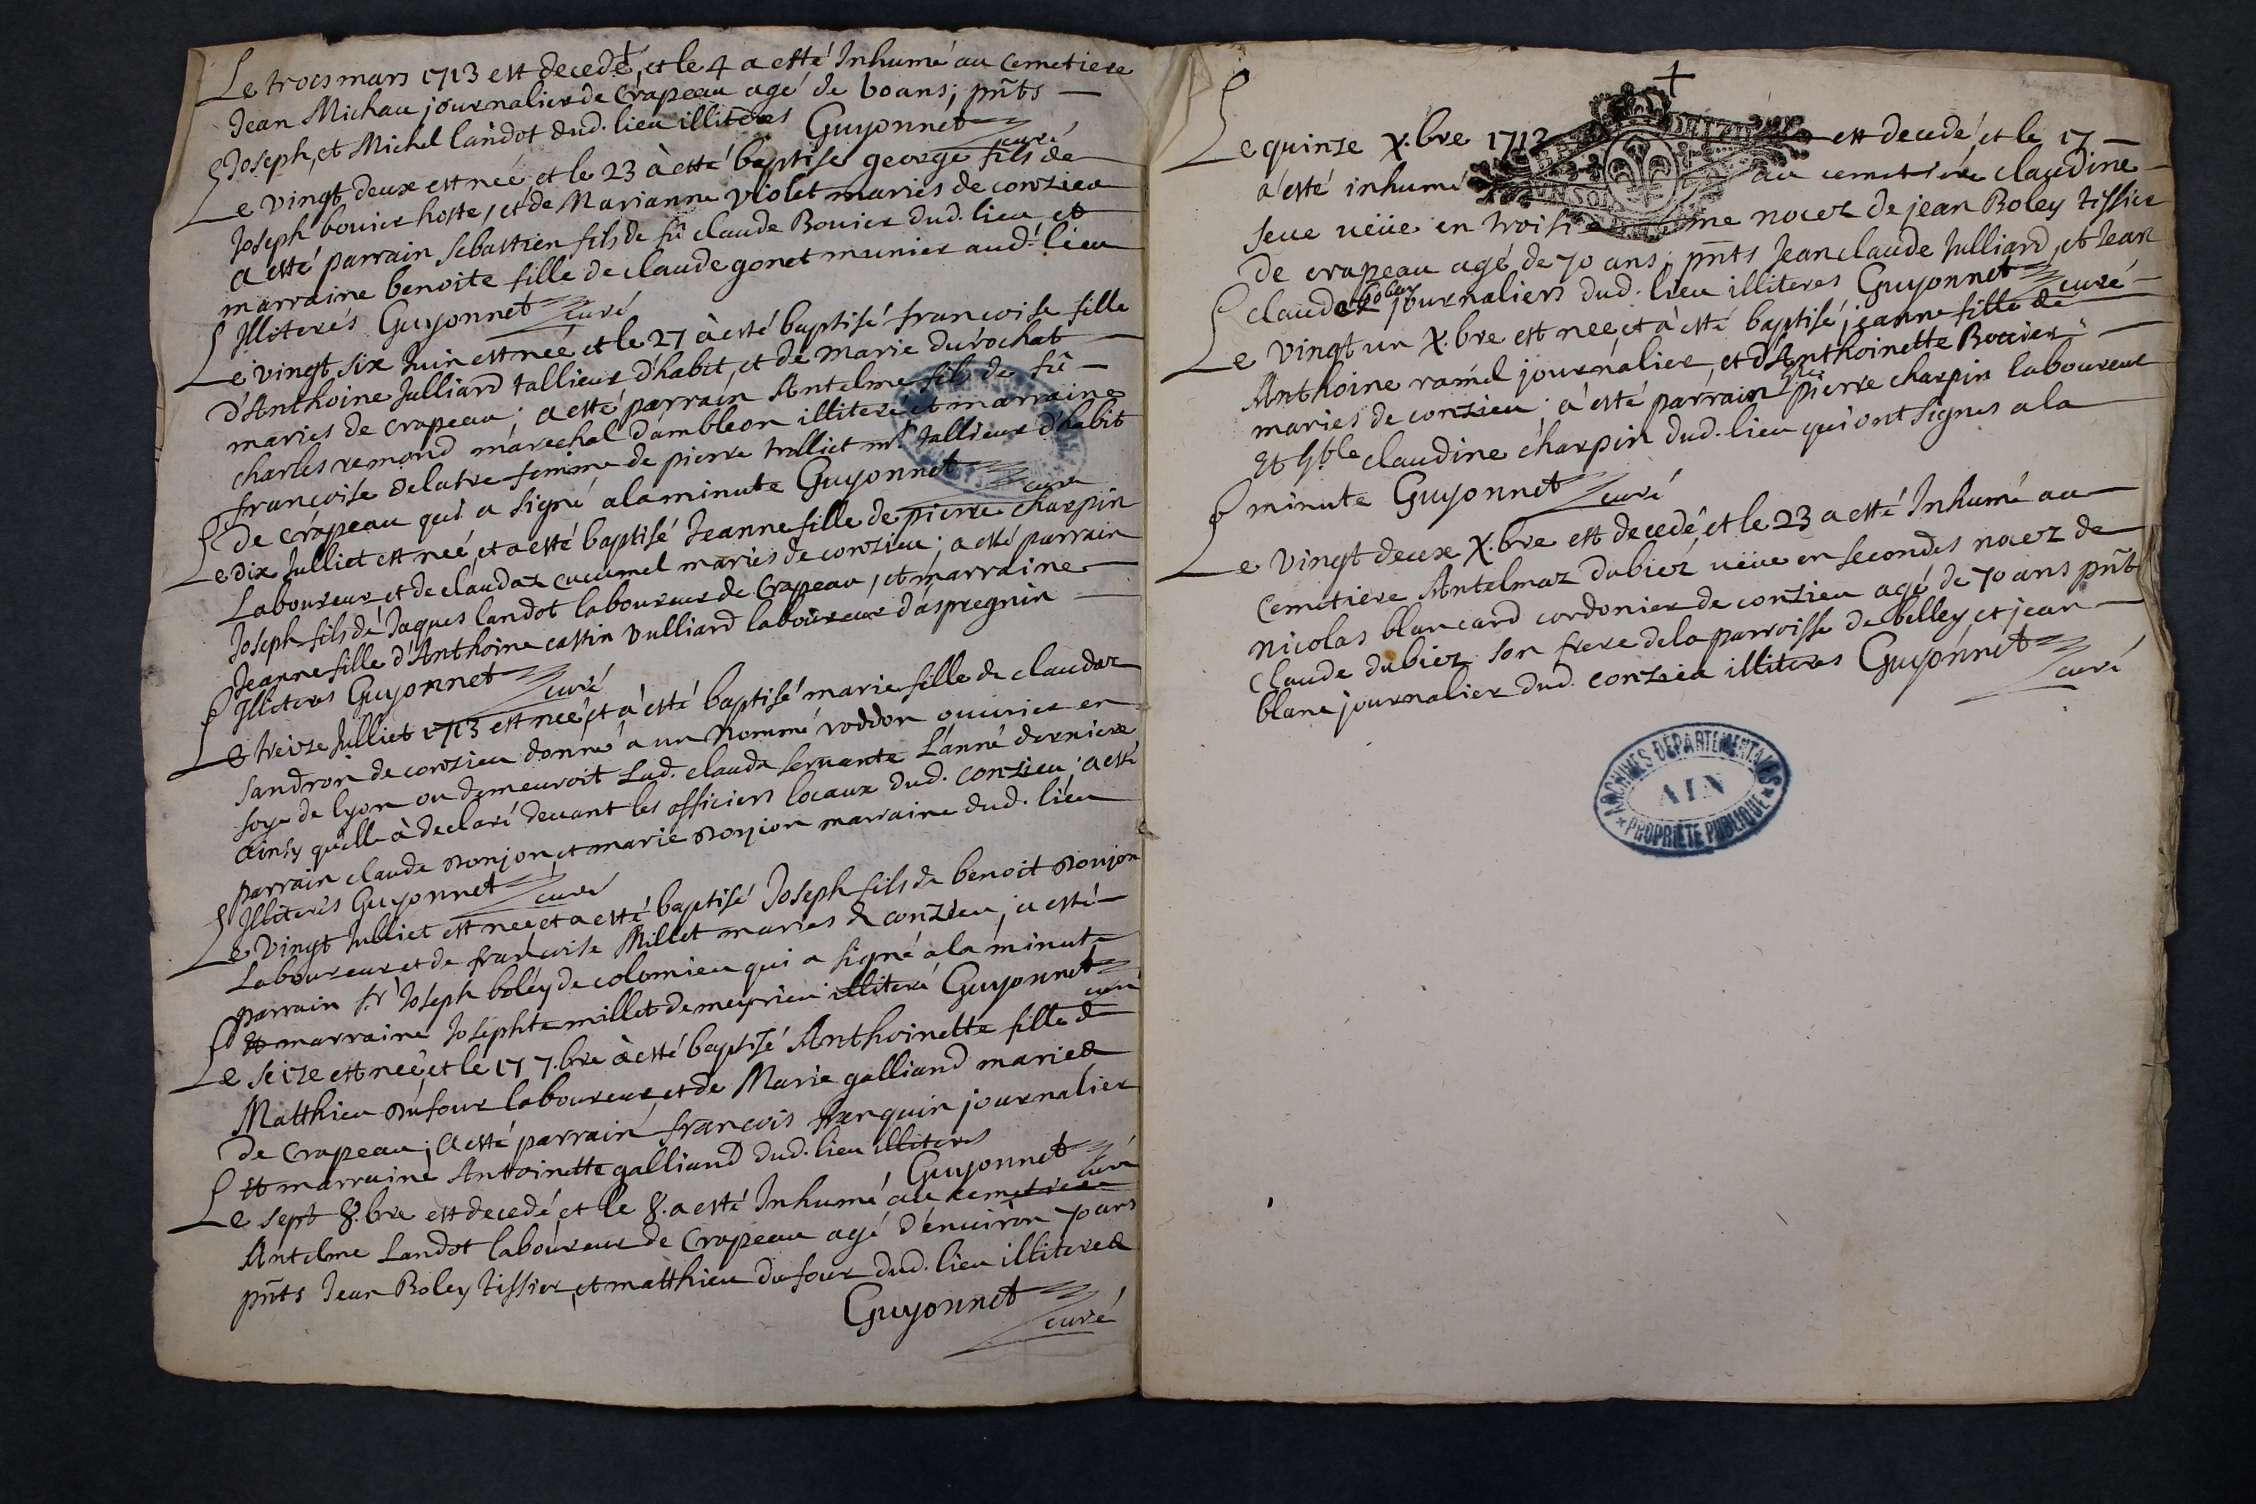 Le trois mars 1713 est decedé, et le 4 a esté Inhumé au cemetiere
Jean Michau journalier de Crapeau agé de 60 ans; pñts
Joseph, et Michel landot dud. lieu illiteres Guyonnet curé
Le vingt deux est né et le 23 à esté baptisé george fils de
Joseph bovier hoste, et de Marianne violet mariés de conzieu
a esté parrain sebastien fils de fû claude Bovier dud. lieu et
marraine benoite fille de claude gonet munier aud. lieu
Illiterés Guyonnet curé
Le vingt six Juin est née et le 27 à esté baptisé francoise fille
d'Anthoine Julliard tallieur d'habit, et de marie durochat
mariés de crapeau; a esté parrain Antelme fils de fû
charles remond marechal dambleon illiteré et marraine
francoise delatre femme de pierre trolliet mr tallieur d'habit
de crapeau qui a signé ala minute Guyonnet curé
Le dix Julliet est neé, et a esté baptisé Jeanne fille de pierre charpin
Laboureur et de claudaz cucumel mariés de conzieu; a esté parrain
Joseph fils de Jaques landot laboureur de Crapeau, et marraine
Jeanne fille d'Anthoine castin vulliard laboureur d'aspregnin
Illiteres Guyonnet curé
Le treize Julliet 1713 est neé, et à esté baptisé marie fille de claudaz
sandron de conzieu donné a un Nommé roddon ouurier en
soye de lyon ou demeuroit Lad. clauda seruante L'anné derniere
ainsy quelle à declaré deuant les officiers locaux dud. conzieu; a esté
parrain claude Donjon et marie Donjon marraine dud. lieu
Illiterés Guyonnet curé
Le vingt Julliet est neé et a esté baptisé Joseph fils de benoit Donjon
Laboureur et de francoise Millet mariés de conzieu; a esté
parrain sr Joseph boley de colomieu qui a signé ala minute
Et marraine Josephte millet de meyrieu illiteré Guyonnet curé
Le seize est neé, et le 17 7.bre à esté baptisé Anthoinette fille de
Matthieu Dufour laboureur, et de Marie galliand mariés
de Crapeau; a esté parrain francois franquin journalier
Et marraine Antoinette galliand dud. lieu illiteres
Guyonnet curé
Le sept 8.bre est decedé, et le 8. a esté Inhumé au cemetiere
Antelme Landot laboureur de Crapeau agé d'enuiron 70 ans
pñts Jean Boley tissier, et matthieu dufour dud. lieu illiterés
Guyonnet curé
Le quinze X.bre 1713 est decedé, et le 17
a esté inhumé au cemetiére claudine
seue ueüe en troisieme nocez de jean Boley tissier
de crapeau agé de 70 ans; pñts Jean claude Julliard, et Jean
claude journaliers dud. lieu illiteres Guyonnet curé
Le vingt un X.bre est neé, et à esté baptisé jeanne fille de
Anthoine ramel journalier, et d'Anthoinette Boccier
mariés de conzieu; a esté parrain pierre charpin laboureur
Et hble claudine charpin dud. lieu qui ont signes a la
minute Guyonnet curé
Le vingt deux X.bre est decedé, et le 23 a esté Inhumé au
cemetiere Antelmaz dubiez ueüe en secondes nocez de
nicolas blancard cordonier de conzieu agé de 70 ans pñt
claude dubiez son frere dela parroisse de belley, et jean
blanc journalier dud. conzieu illiteres Guyonnet curé
ARCHIVES DEPARTEMENTALES
AIN
PROPRIÉTÉ PUBLIQUE